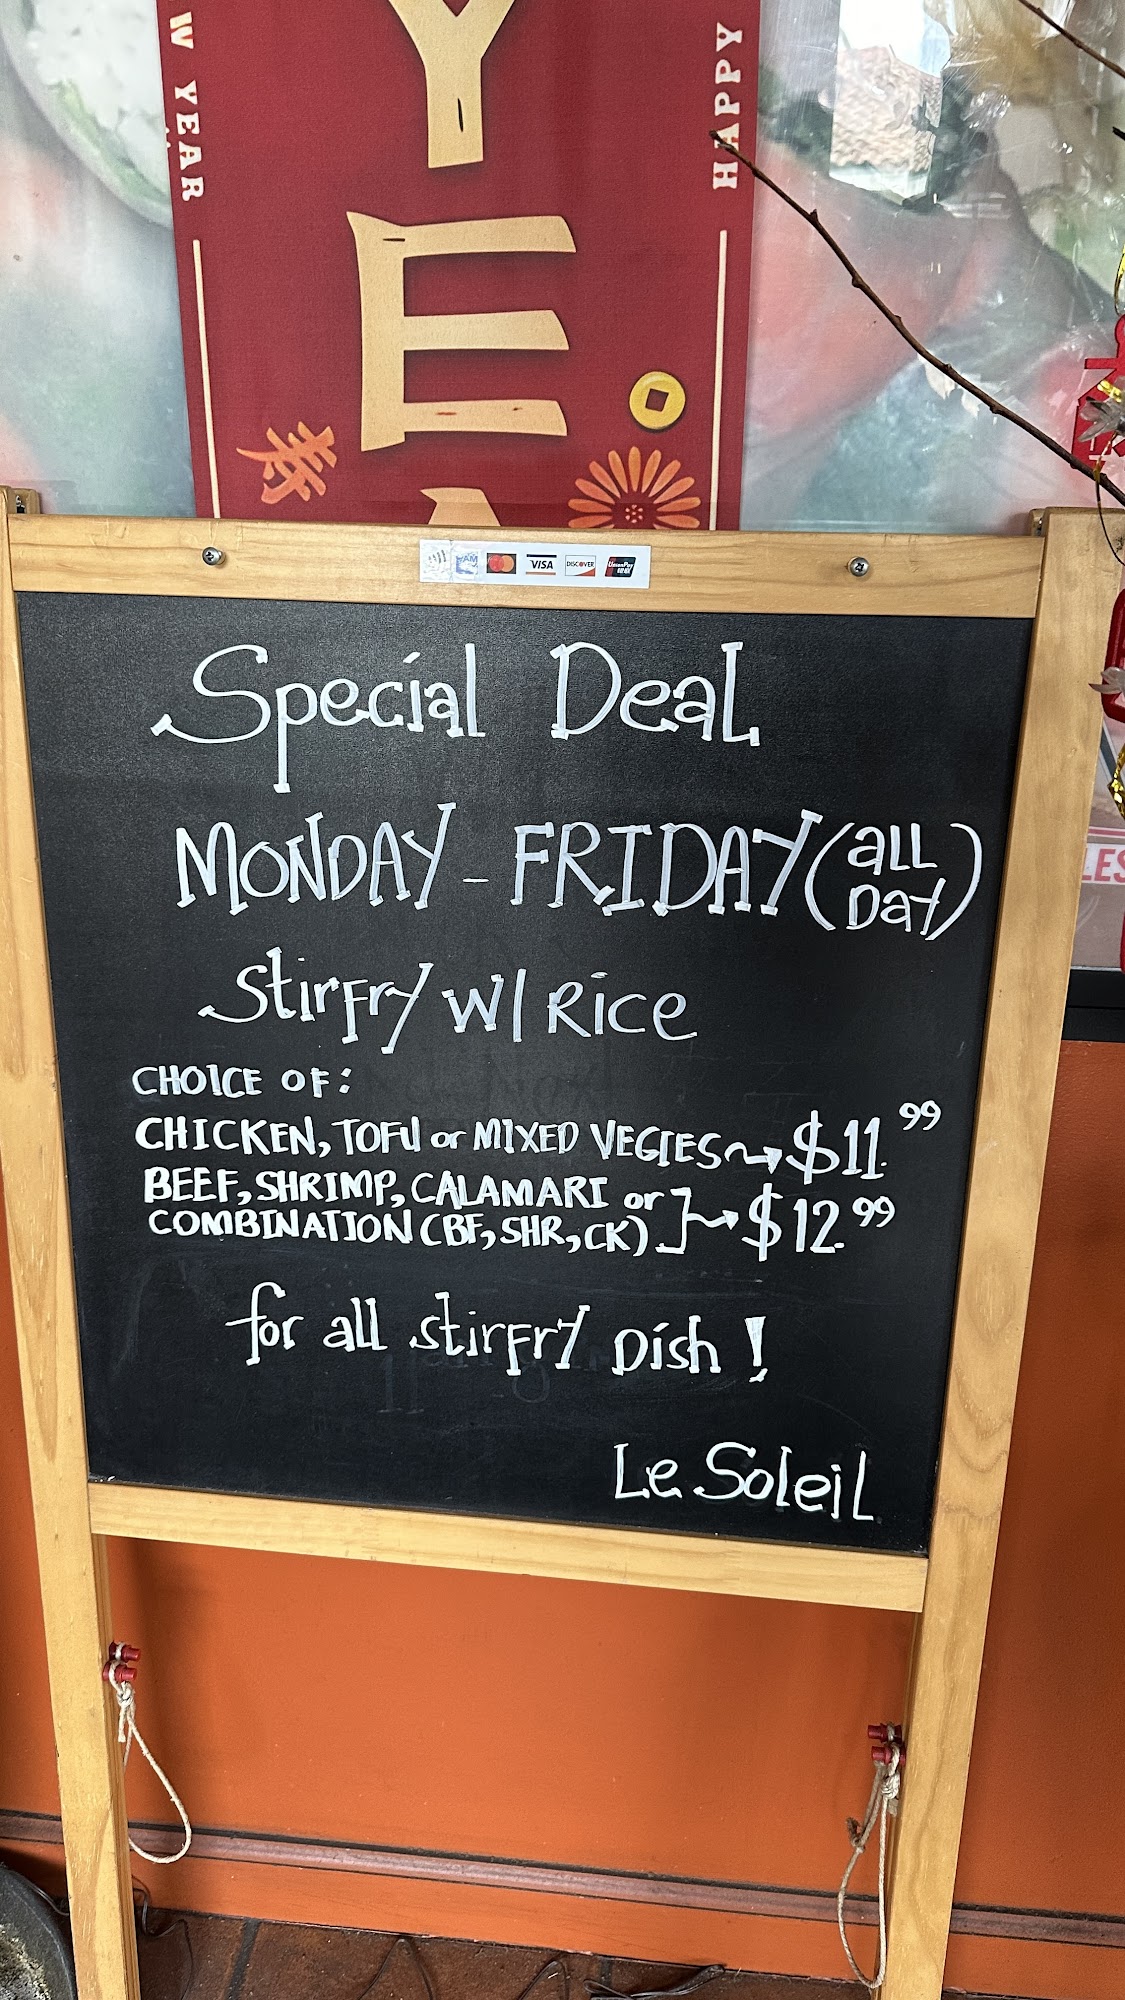 W YEAR
HAPPY
Y
E
壽
VISA
DISCOVER
UnionPay
Special Deal
MONDAY - FRIDAY (all Day)
Stirfry w/ Rice
CHOICE OF:
CHICKEN, TOFU or MIXED VEGIES $11.99
BEEF, SHRIMP, CALAMARI or
COMBINATION (BF, SHR, CK) $12.99
for all stirfry Dish!
Le Soleil